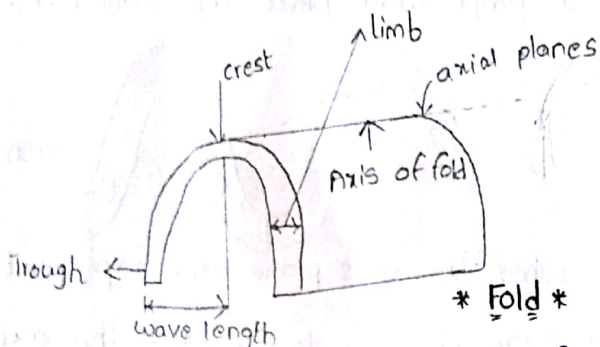 limb
crest
axial planes
Axis of fold
Trough
wave length
* Fold *